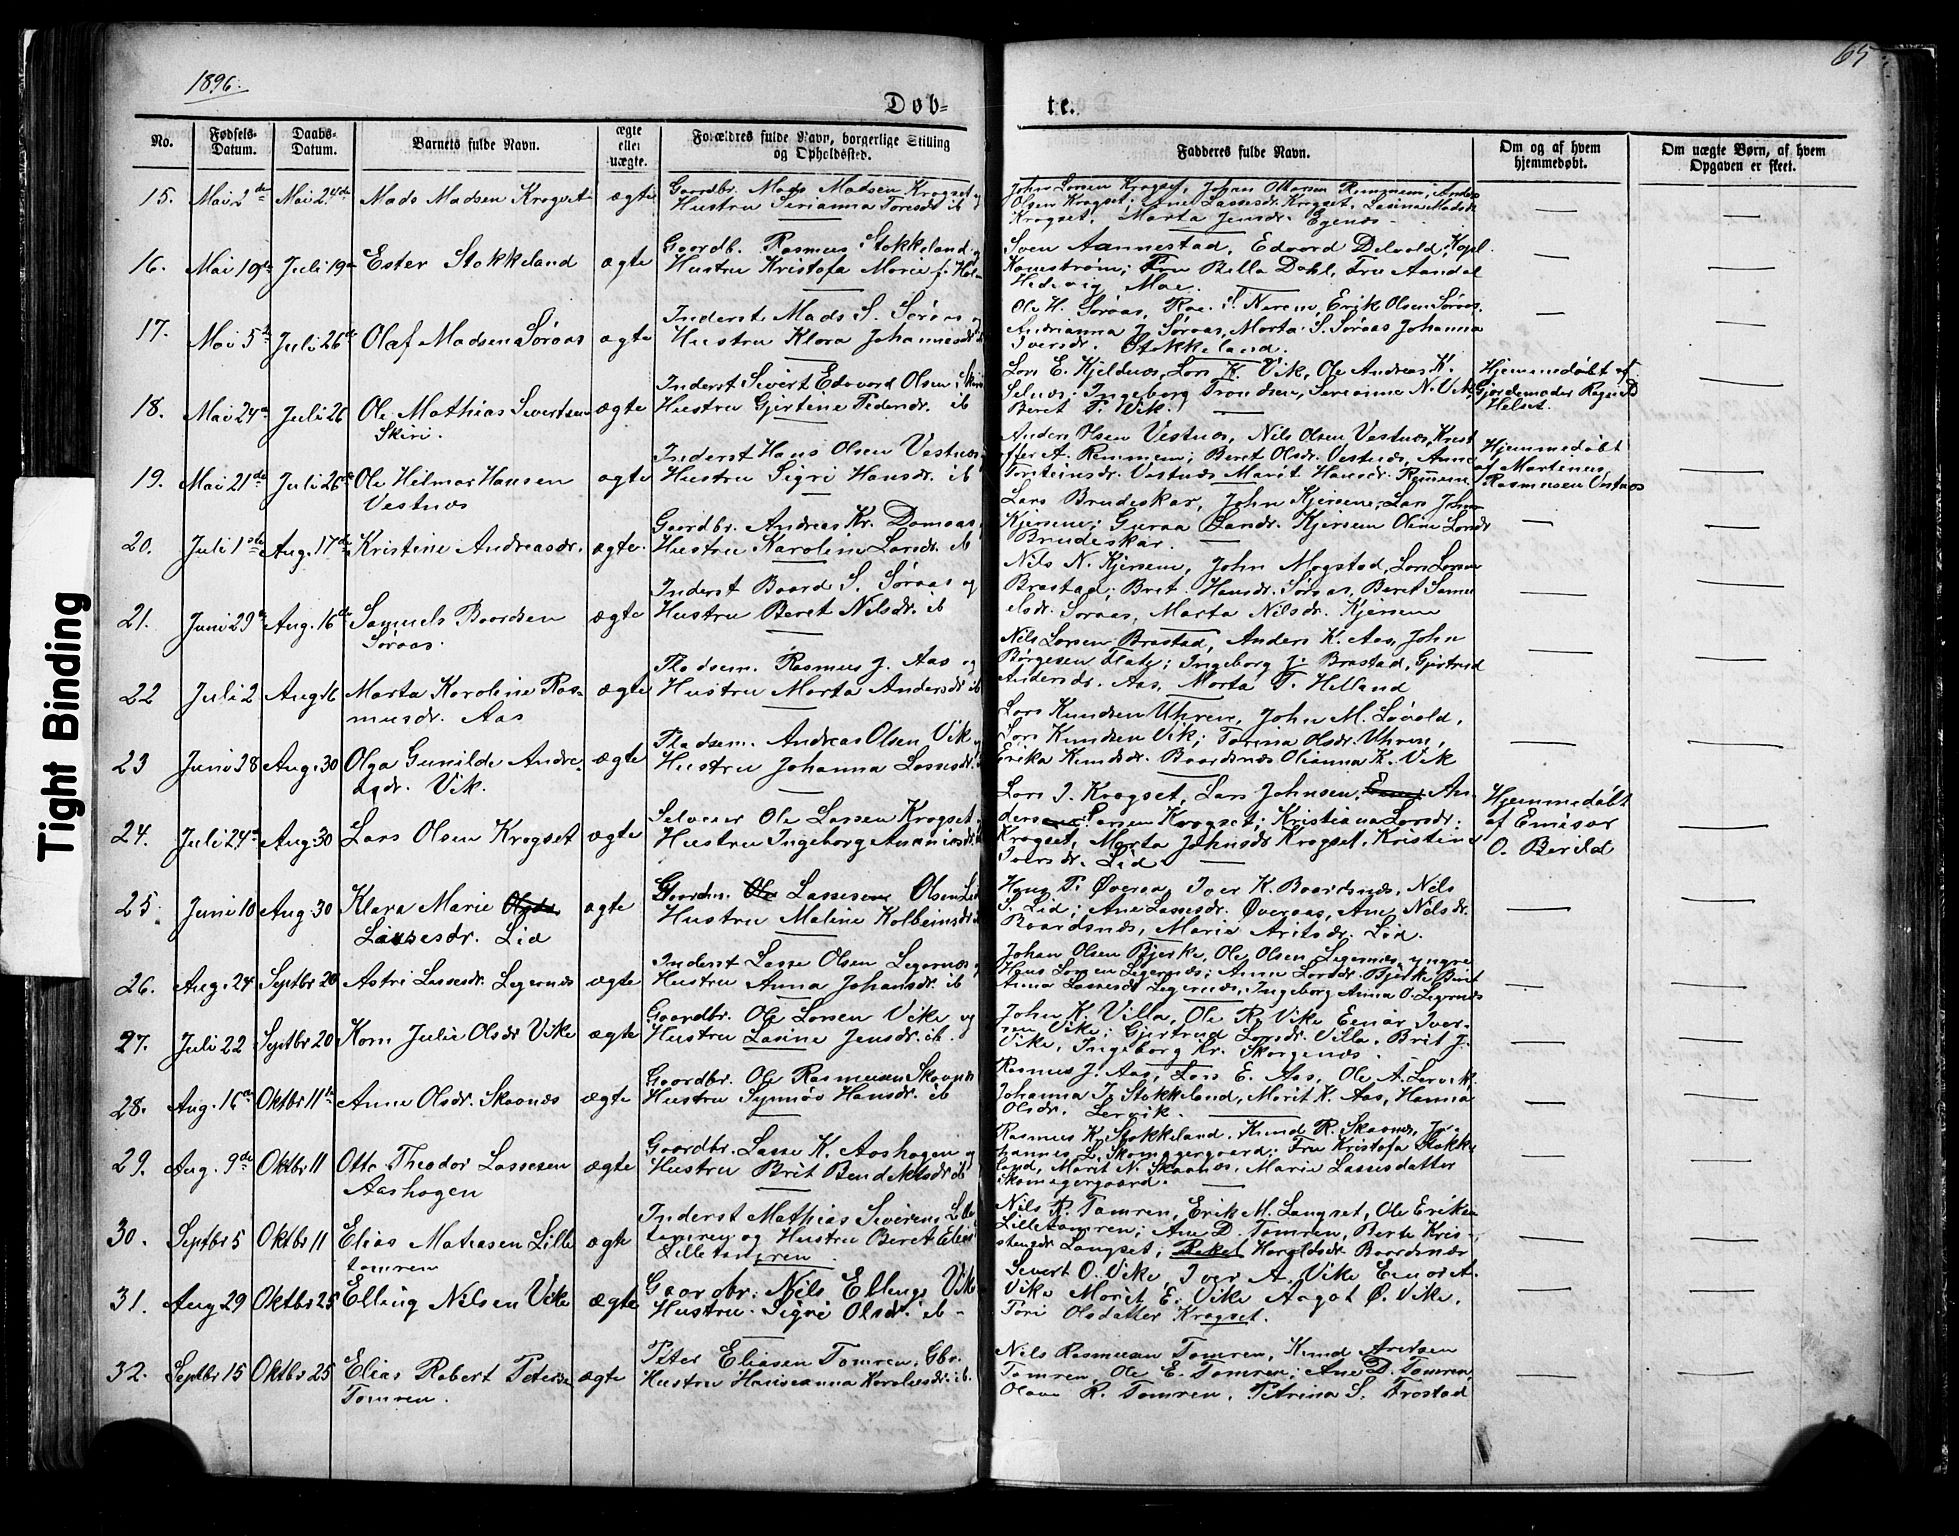 65
1896.
Døb-
te.
No.
Fødsels-
Datum.
Daabs-
Datum.
Barnets fulde Navn.
ægte
eller
uægte.
Forældres fulde Navn, borgerlige Stilling
og Opholdssted.
Fadderes fulde Navn.
Om og af hvem
hjemmedøbt.
Om uægte Børn, af hvem
Opgaven er skeet.
Tight Binding
15. Mai 2de Mai 24de Mads Madsen Krogset ægte
Gaardbr. Mads Madsen Krogset og
Hustru Serianna Toresdr ib
John Larsen Krogset, Johan Ottersen Remmem, Anders
Olsen Krogset; Ane Lassesdr. Krogset, Lasina Madsdr
Krogset, Marta Jensdr. Egenes
16. Mai 19de Juli 19de Ester Stokkeland ægte
Gaardb. Rasmus Stokkeland og
Hustru Kristofa Marie f.
Sven Aannestad, Edvard Delvold, Kapl.
Fru Bella Dahl, Fru Aandal
Hedevig Moe.
17. Mai 5te Juli 26de Olaf Madsen Søraas ægte
Inderst Mads S. Søraas og
Hustru Klara Johannesdr ib
Ole H. Søraas, S. Nerem, Erik Olsen Søraas
Andrianna J. Søraas, Marta S. Søraas Johanna
Iversdr. Stokkeland.
18. Mai 24de Juli 26 Ole Mathias Sivertsen ægte
Skiri.
Inderst Sivert Edvard Olsen Skiri
Hustru Gjertine Pedersdr. ib
Lars E. Kjeldnæs, Lars K. Vik, Ole Andreas K.
Ingeborg Serianne N. Vik
Beret T. Vik.
Hjemmedøbt af
Gjordemoder
Helset.
19. Mai 21de Juli 26de Ole Hilmar Hansen ægte
Vestnæs
Inderst Hans Olsen Vestnæs
Hustru Sigri Hansdr. ib
Anders Olsen Vestnæs, Nils Olsen Vestnæs, Krist
offer A. Remmem; Beret Olsdr. Vestnæs, Anne
Torsteinsdr. Vestnæs Marit Hansdr. Remmem
Hjemmedøbt
af Martenus
Rasmussen Vestnæs
20. Juli 1ste Aug. 17de Kristine Andreasdr. ægte
Gaardbr. Andreas Kr. Domaas,
Hustru Karoline Larsdr. ib
Lars Brudeskar, John Kjersem, Lars Johns
Kjersem; Guraa Larsdr. Kjersem Oline Larsdr
Brudeskar.
21. Juni 29de Aug. 16de Samuel Baardsen ægte
Søraas.
Inderst Baard S. Søraas og
Hustru Beret Nilsdr. ib
Nils N. Kjersem, John Mogstad, Lars Larsen
Brastad; Brit Hansdr. Søraas, Beret Samu
elsdr. Søraas, Marta Nilsdr. Kjersem
22 Juli 2 Aug 16 Marta Karoline Ras- ægte
musdr. Aas
Pladsem. Rasmus J. Aas og
Hustru Marta Andersdr ib
Nils Larsen Brastad, Anders K. Aas, John
Børgesen Flate; Ingeborg J. Brastad, Gjertrud
Andersdr. Aas, Marta T. Helland
23 Juni 28 Aug. 30 Olga Gunilde Andre- ægte
asdr. Vik.
Pladsem. Andreas Olsen Vik
Hustru Johanna Lassesdr.
Lars Knudsen Uhren, John M. Løvold,
Lars Knudsen Vik; Torina Olsdr. Uhren,
Erika Knudsdr. Baardsnæs Olianna K. Vik
24. Juli 24de Aug 30 Lars Olsen Krogset ægte
Selveier Ole Larsen Krogset
Hustru Ingeborg Ananiasdr
Lars J. Krogset, Lars Johnsen, An-
ders Larsen Krogset; Kristiana Larsdr.
Krogset, Marta Johnsdr Krogset, Kristine
Iversdr. Lid
Hjemmedøbt
af Emisær
O. Berild
25. Juni 10 Aug 30 Klara Marie ægte
Lassesdr. Lid
Gaardm. Ole Lassesen Olsen Lid
Hustru Maline Kolbeinsdr
Hans P. Øveraa, Iver K. Baardsnæs, Nils
S. Lid; Ane Lassesdr. Øveraas, Ane Nilsdr.
Baardsnæs, Marie Arntsdr. Lid.
26. Aug. 24 Septbr 20 Astri Lassesdr. Legernæs ægte
Inderst Lasse Olsen Legernæs
Hustru Anna Johansdr. ib
Johan Olsen Bjerke, Ole Olsen Legernes yngre
Hans Larsen Legernæs; Anne Larsdr. Bjerke, Brit
Anna Lassesdr Legernæs, Ingeborg Anna O. Legernæs
27. Juli 22 Septbr 20 Karn Julie Olsdr Vike ægte
Gaardbr. Ole Larsen Vike og
Hustru Lasine Jensdr. ib.
John K. Villa, Ole R. Vike Einar Iver-
sen Vike; Gjertrud Larsdr. Villa, Brit J.
Vike, Ingeborg Kr. Skorgenæs.
28. Aug. 16de Oktbr 11te Anne Olsdr. Skavnæs ægte
Gaardbr. Ole Rasmussen Skavnæs
Hustru Synnøv Hansdr. ib
Rasmus J. Aas, Lars E. Aas, Ole A. Lervik.
Johanna J. Stokkeland, Marit K. Aas, Hanna
Olsdr. Lervik.
29. Aug. 9de Oktbr 11 Otto Theodor Lassesen ægte
Aashagen
Gaardbr. Lasse K. Aashagen og
Hustru Brit Bendiktsdr ib
Rasmus K. Stokkeland. Knud R. Skavnæs, Jo-
hannes L. Skomagergaard; Fru Kristofa Stokke
land, Marit N. Skavnæs, Marie Lassesdatter
Skomagergaard.
30. Septbr 5 Oktbr 11 Elias Matiasen Lille ægte
tomren
Inderst Mathias Siverin Lille
tomren og Hustru Beret
Lilletomren
Nils R. Tomren, Erik M. Langset, Ole Eriksen
Lilletomren; Ane D. Tomren, Berte Kris-
stensdr. Langset, Rakel Haraldsdr. Baardsnæs
31. Aug 29 Oktbr 25 Elling Nilsen Vike ægte
Gaardbr. Nils Ellings. Vik
Hustru Sigri Olsdr. ib
Sivert O. Vike, Iver A. Vike Einar A.
Vike Marit E. Vike Aagot Ø. Vike,
Tori Olsdatter Krogset.
32. Septbr 15 Oktbr 25 Elias Robert Petersen ægte
Tomren.
Peter Eliasen Tomren. Gbr.
Hustru Hanseanna Karolusdr. ib.
Nils Rasmussen Tomren, Knud
Tomren, Ole E. Tomren; Ane D. Tomren,
Olave R. Tomren, Petrina S. Frostad